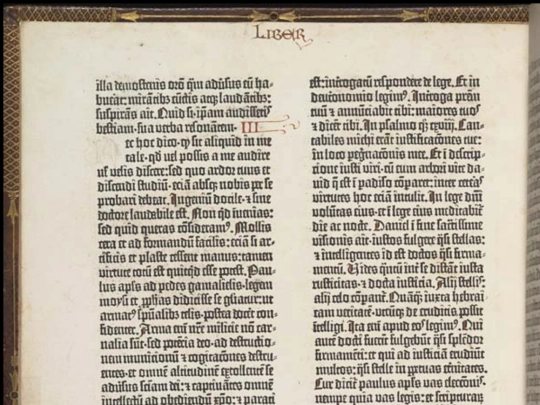 LIBER
illa demostenis orō q̄m adūsus eū ha-
buerat: mirātibꝫ cūctis atqꝫ laudātibꝫ:
suspirās ait. Quid si ipam audissetis
bestiam· sua verba resonātem. III
ec hoc dico· qꝫ sit aliquid in me
tale· qd vel possis a me audire
vel velis discere: sed quo ardor tuus et
discendi studiū· eciā absqꝫ nobis per se
probari debeat. Ingeniū docile· & sine
doctore laudabile est. Nō qd inuenias:
sed quid queras cōsideramꝰ. Mollis
cera et ad formandū facilis: eciā si ar-
tificis et plaste cessent manus: tamen
virtute totū est quicqd esse potest. Pau-
lus apls ad pedes gamalielis· legem
moysi et pphās didicisse se gloriatur: ut
armatꝰ spūalibꝫ telis· postea doceret con-
fidenter. Arma enī nrē milicie nō car-
nalia sūt· sed potētia deo· ad destructio-
nem municionū· & cogitaciones destru-
entes· et omnē altitudinē extollentē se
adūsus sciam dei: & captiuātes omnē
intellectū ad obediendū xpo: & parati
est: īterrogatū respondere de lege. Et in
deutronomio legimꝰ. Interroga prēm
tuū & annūciabit tibi: maiores tuos
& dicēt tibi. In psalmo qꝫ cxviij. Can-
tabiles michi erāt iustificacōnes tue:
in loco pegrinacōnis mee. Et ī descrip-
cione iusti viri· cū eum arbori vite da-
uid q̄ est ī padiso cōpararet: inter ceteras
virtutes hoc eciā intulit. In lege dñi
volūtas eius· et ī lege eius meditabitur
die ac nocte. Daniel ī fine sacratissime
visionis ait· iustos fulgere qsi stellas:
& intelligentes id est doctos qsi firma-
mentū. Vides quātū īter se distāt iusta
rusticitas· & docta iusticia. Alij stellis:
alij celo cōparāt. Quāqꝫ iuxta hebrai-
cam veritatē· utrūqꝫ de eruditis possit
intelligi. Ita enī apud eos legimꝰ. Qui
autē docti fuerīt fulgebūt qsi splēdor
firmamēti: et qui ad iusticiā erudiūt
multos: qsi stelle in ppetuas eternitates.
Cur dicitur paulus apls vas eleccōnis·
nempe quia vas legis· et scripturarū